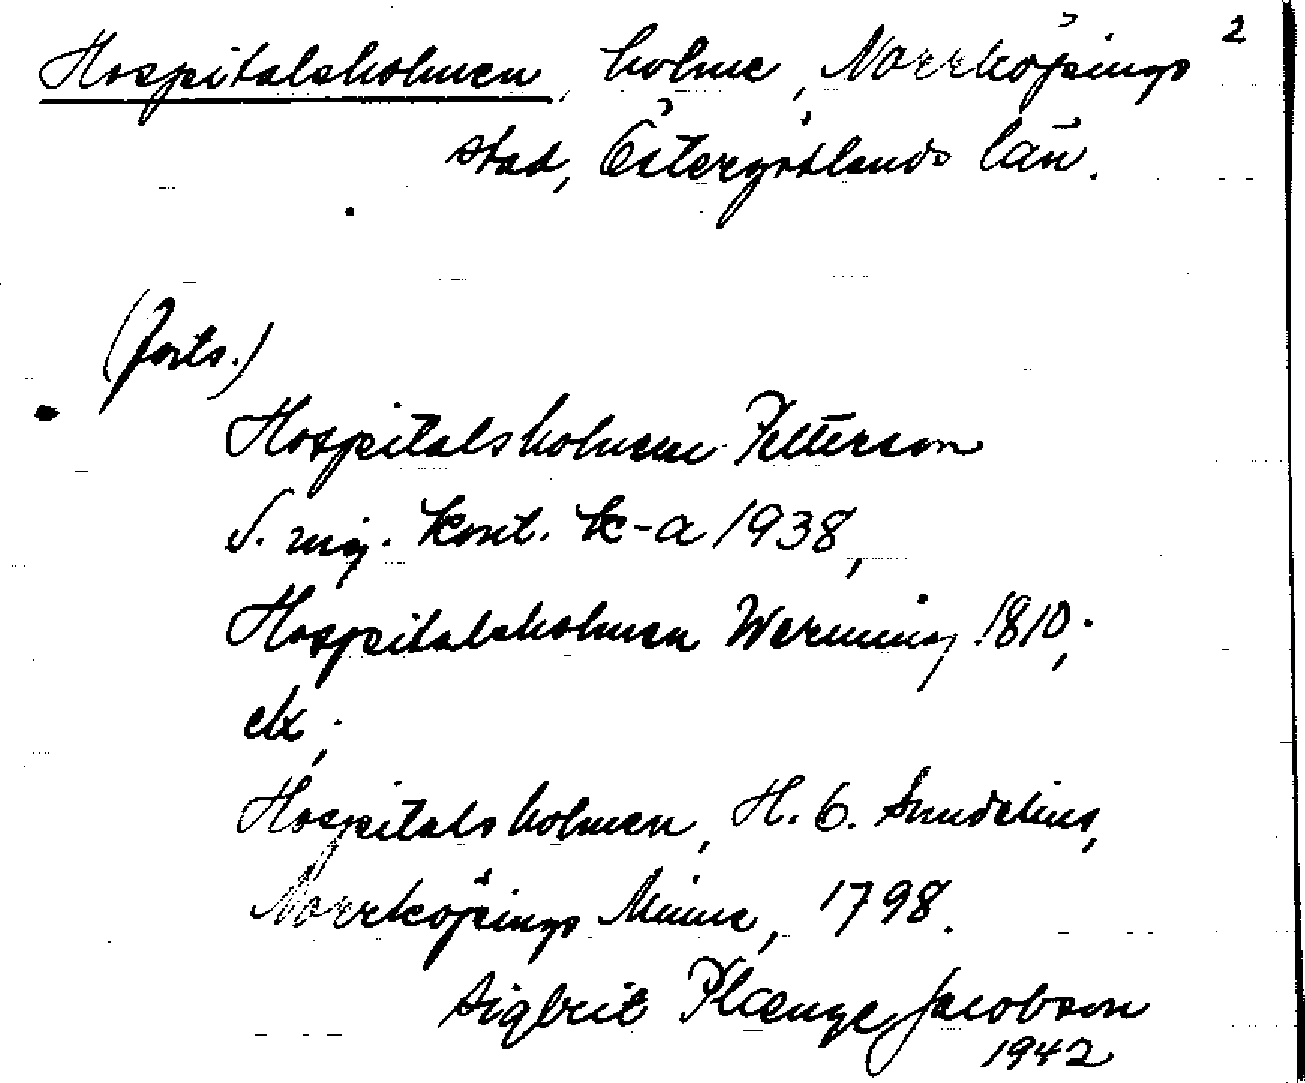 2
Hospitalsholmen, holme, Norrköpings
stad, Östergötlands län.
(forts.)
Hospitalsholmen Petterson
S. mg. kont. k-a 1938,
Hospitalsholmen Werming 1810;
ek;
Hospitalsholmen, H. O. Sundelius,
Norrköpings Minne, 1798.
Sigbrit Plænge Jacobson
1942